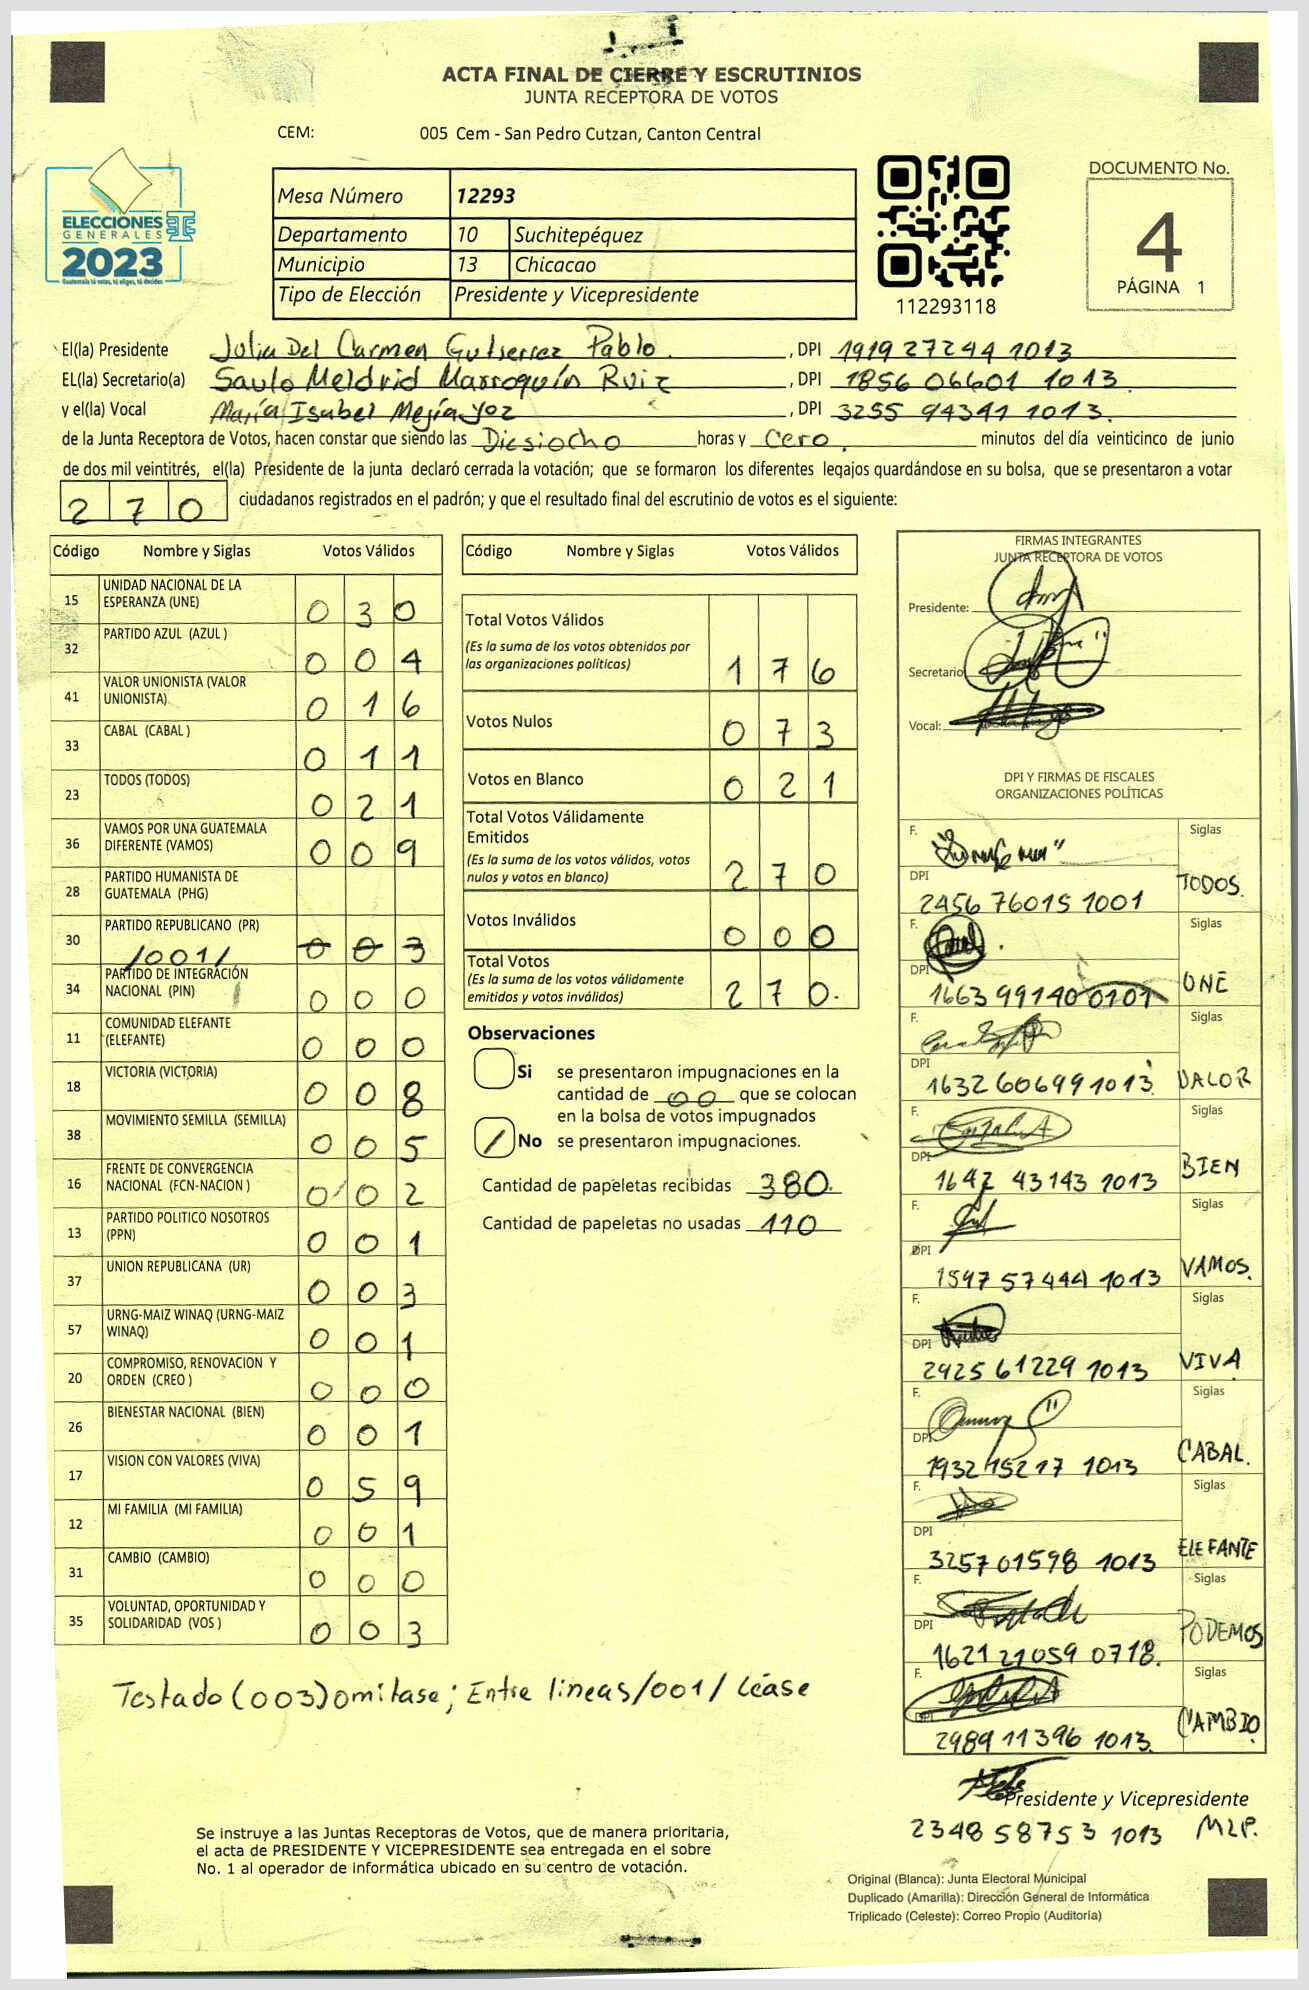 ACTA FINAL DE CIERRE Y ESCRUTINIOS
JUNTA RECEPTORA DE VOTOS
CEM: 005 Cem - San Pedro Cutzan, Canton Central
ELECCIONES
GENERALES
2023
Guatemala tú votas, tú eliges, tú decides
Mesa Número 12293
Departamento 10 Suchitepéquez
Municipio 13 Chicacao
Tipo de Elección Presidente y Vicepresidente
112293118
DOCUMENTO No.
4
PÁGINA 1
El(la) Presidente Julia Del Carmen Gutierrez Pablo. , DPI 1919 27244 1013
EL(la) Secretario(a) Saulo Meldrid Marroquín Ruiz , DPI 1856 06601 1013.
y el(la) Vocal María Isabel Mejía yoz , DPI 3255 94341 1013.
de la Junta Receptora de Votos, hacen constar que siendo las Diesiocho horas y Cero. minutos del día veinticinco de junio
de dos mil veintitrés, el(la) Presidente de la junta declaró cerrada la votación; que se formaron los diferentes legajos quardándose en su bolsa, que se presentaron a votar
270 ciudadanos registrados en el padrón; y que el resultado final del escrutinio de votos es el siguiente:
Código Nombre y Siglas Votos Válidos
15 UNIDAD NACIONAL DE LA ESPERANZA (UNE) 0 3 0
32 PARTIDO AZUL (AZUL ) 0 0 4
41 VALOR UNIONISTA (VALOR UNIONISTA) 0 1 6
33 CABAL (CABAL ) 0 1 1
23 TODOS (TODOS) 0 2 1
36 VAMOS POR UNA GUATEMALA DIFERENTE (VAMOS) 0 0 9
28 PARTIDO HUMANISTA DE GUATEMALA (PHG)
30 PARTIDO REPUBLICANO (PR) /001/ 0 0 3
34 PARTIDO DE INTEGRACIÓN NACIONAL (PIN) 0 0 0
11 COMUNIDAD ELEFANTE (ELEFANTE) 0 0 0
18 VICTORIA (VICTORIA) 0 0 8
38 MOVIMIENTO SEMILLA (SEMILLA) 0 0 5
16 FRENTE DE CONVERGENCIA NACIONAL (FCN-NACION ) 0 0 2
13 PARTIDO POLITICO NOSOTROS (PPN) 0 0 1
37 UNION REPUBLICANA (UR) 0 0 3
57 URNG-MAIZ WINAQ (URNG-MAIZ WINAQ) 0 0 1
20 COMPROMISO, RENOVACION Y ORDEN (CREO ) 0 0 0
26 BIENESTAR NACIONAL (BIEN) 0 0 1
17 VISION CON VALORES (VIVA) 0 5 9
12 MI FAMILIA (MI FAMILIA) 0 0 1
31 CAMBIO (CAMBIO) 0 0 0
35 VOLUNTAD, OPORTUNIDAD Y SOLIDARIDAD (VOS ) 0 0 3
Testado (003) omitase; Entre lineas/001/ Léase
Código Nombre y Siglas Votos Válidos
Total Votos Válidos 1 7 6
(Es la suma de los votos obtenidos por
las organizaciones políticas)
Votos Nulos 0 7 3
Votos en Blanco 0 2 1
Total Votos Válidamente
Emitidos
(Es la suma de los votos válidos, votos
nulos y votos en blanco) 2 7 0
Votos Inválidos 0 0 0
Total Votos
(Es la suma de los votos válidamente
emitidos y votos inválidos) 2 7 0.
Observaciones
Si se presentaron impugnaciones en la
cantidad de 00 que se colocan
en la bolsa de votos impugnados
/ No se presentaron impugnaciones.
Cantidad de papeletas recibidas 380.
Cantidad de papeletas no usadas 110
FIRMAS INTEGRANTES
JUNTA RECEPTORA DE VOTOS
Presidente:
Secretario
Vocal:
DPI Y FIRMAS DE FISCALES
ORGANIZACIONES POLÍTICAS
F. Siglas
DPI 2456 76015 1001 TODOS.
F. Siglas
DPI 1663 99140 0101 UNE
F. Siglas
DPI 1632 60699 1013 VALOR
F. Siglas
DPI 1642 43143 1013 BIEN
F. Siglas
DPI 1597 57444 1013 VAMOS.
F. Siglas
DPI 2925 61229 1013 VIVA
F. Siglas
DPI 1932 15217 1013 CABAL.
F. Siglas
DPI 3257 01598 1013 ELEFANTE
F. Siglas
DPI 1621 21059 0718. PODEMOS
F. Siglas
DPI 2989 11396 1013. CAMBIO
Presidente y Vicepresidente
2348 58753 1013 MLP.
Se instruye a las Juntas Receptoras de Votos, que de manera prioritaria,
el acta de PRESIDENTE Y VICEPRESIDENTE sea entregada en el sobre
No. 1 al operador de informática ubicado en su centro de votación.
Original (Blanca): Junta Electoral Municipal
Duplicado (Amarilla): Dirección General de Informática
Triplicado (Celeste): Correo Propio (Auditoría)